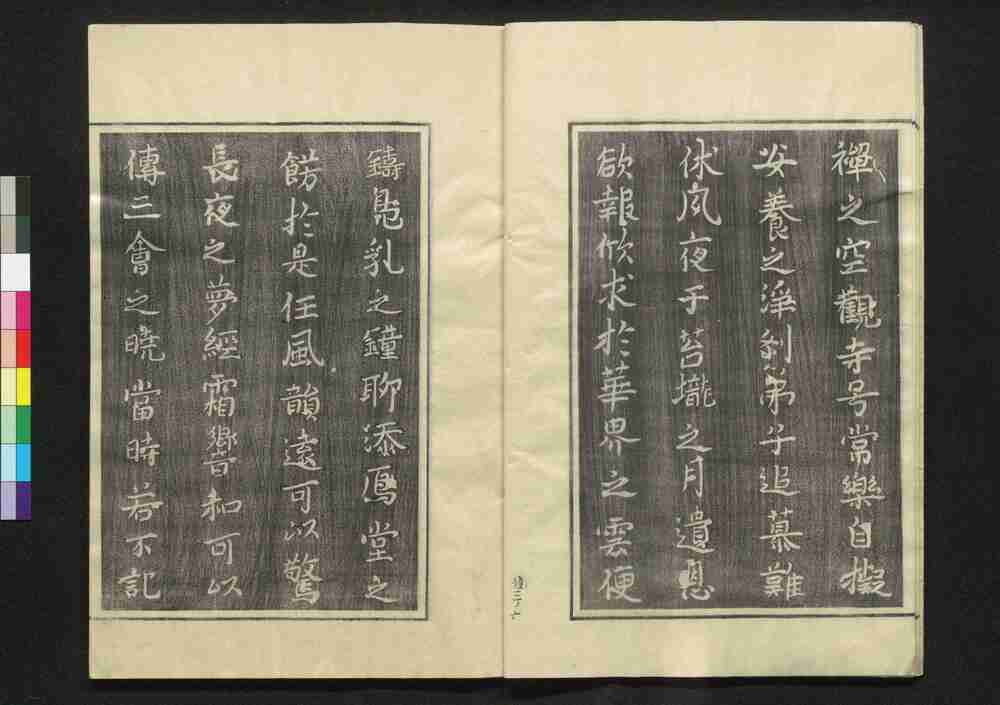 禅之空觀寺号常樂自擬
安養之淨刹弟子追慕難
休夙夜于苔壠之月遺恩
欲報欣求於華界之雲便
鑄鳧乳之鐘聊添鳫堂之
餝於是任風韻遠可以驚
長夜之夢經霜響和可以
傳三會之曉當時若不記